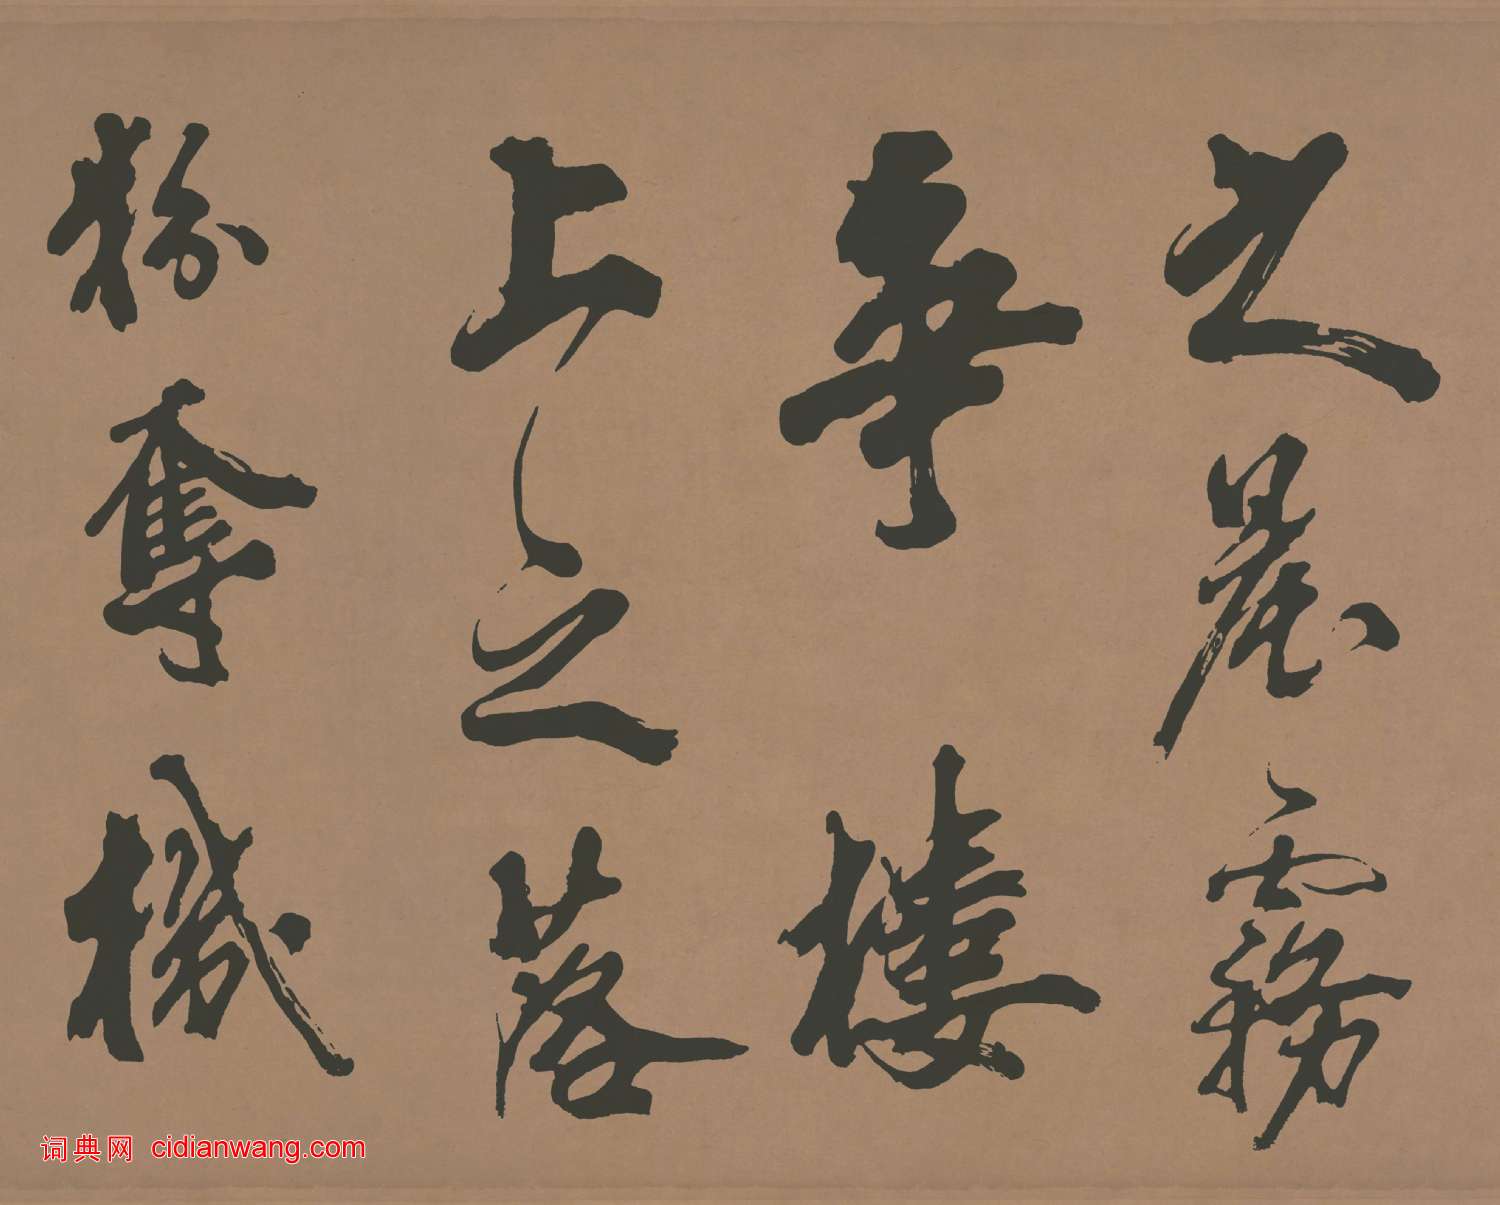 之晨霧
爭樓
上之落
粉奪機
词典网 cidianwang.com